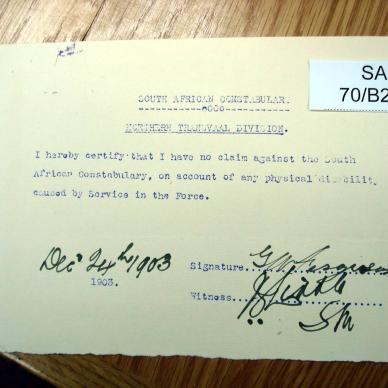 SA
70/B2
SOUTH AFRICAN CONSTABULARY.
NORTHERN TRANSVAAL DIVISION.
I hereby certify that I have no claim against the South
African Constabulary, on account of any physical disability
caused by Service in the Force.
Dec 24th 1903
1903.
Signature
Witness